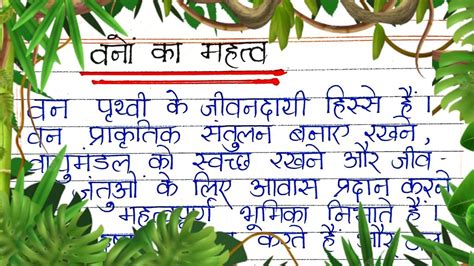 वनों का महत्व
वन पृथ्वी के जीवनदायी हिस्से हैं।
वन प्राकृतिक संतुलन बनाए रखने,
वायुमंडल को स्वच्छ रखने और जीव-
जंतुओं के लिए आवास प्रदान करने
महत्वपूर्ण भूमिका निभाते हैं।
करते हैं और